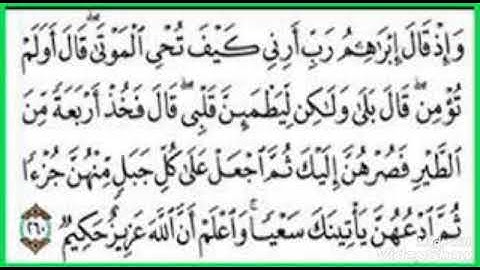 وَإِذْ قَالَ إِبْرَٰهِـۧمُ رَبِّ أَرِنِي كَيْفَ تُحْيِ ٱلْمَوْتَىٰ ۖ قَالَ أَوَلَمْ
تُؤْمِن ۖ قَالَ بَلَىٰ وَلَٰكِن لِّيَطْمَئِنَّ قَلْبِي ۖ قَالَ فَخُذْ أَرْبَعَةً مِّنَ
ٱلطَّيْرِ فَصُرْهُنَّ إِلَيْكَ ثُمَّ ٱجْعَلْ عَلَىٰ كُلِّ جَبَلٍ مِّنْهُنَّ جُزْءًا
ثُمَّ ٱدْعُهُنَّ يَأْتِينَكَ سَعْيًا ۚ وَٱعْلَمْ أَنَّ ٱللَّهَ عَزِيزٌ حَكِيمٌ ٢٦٠